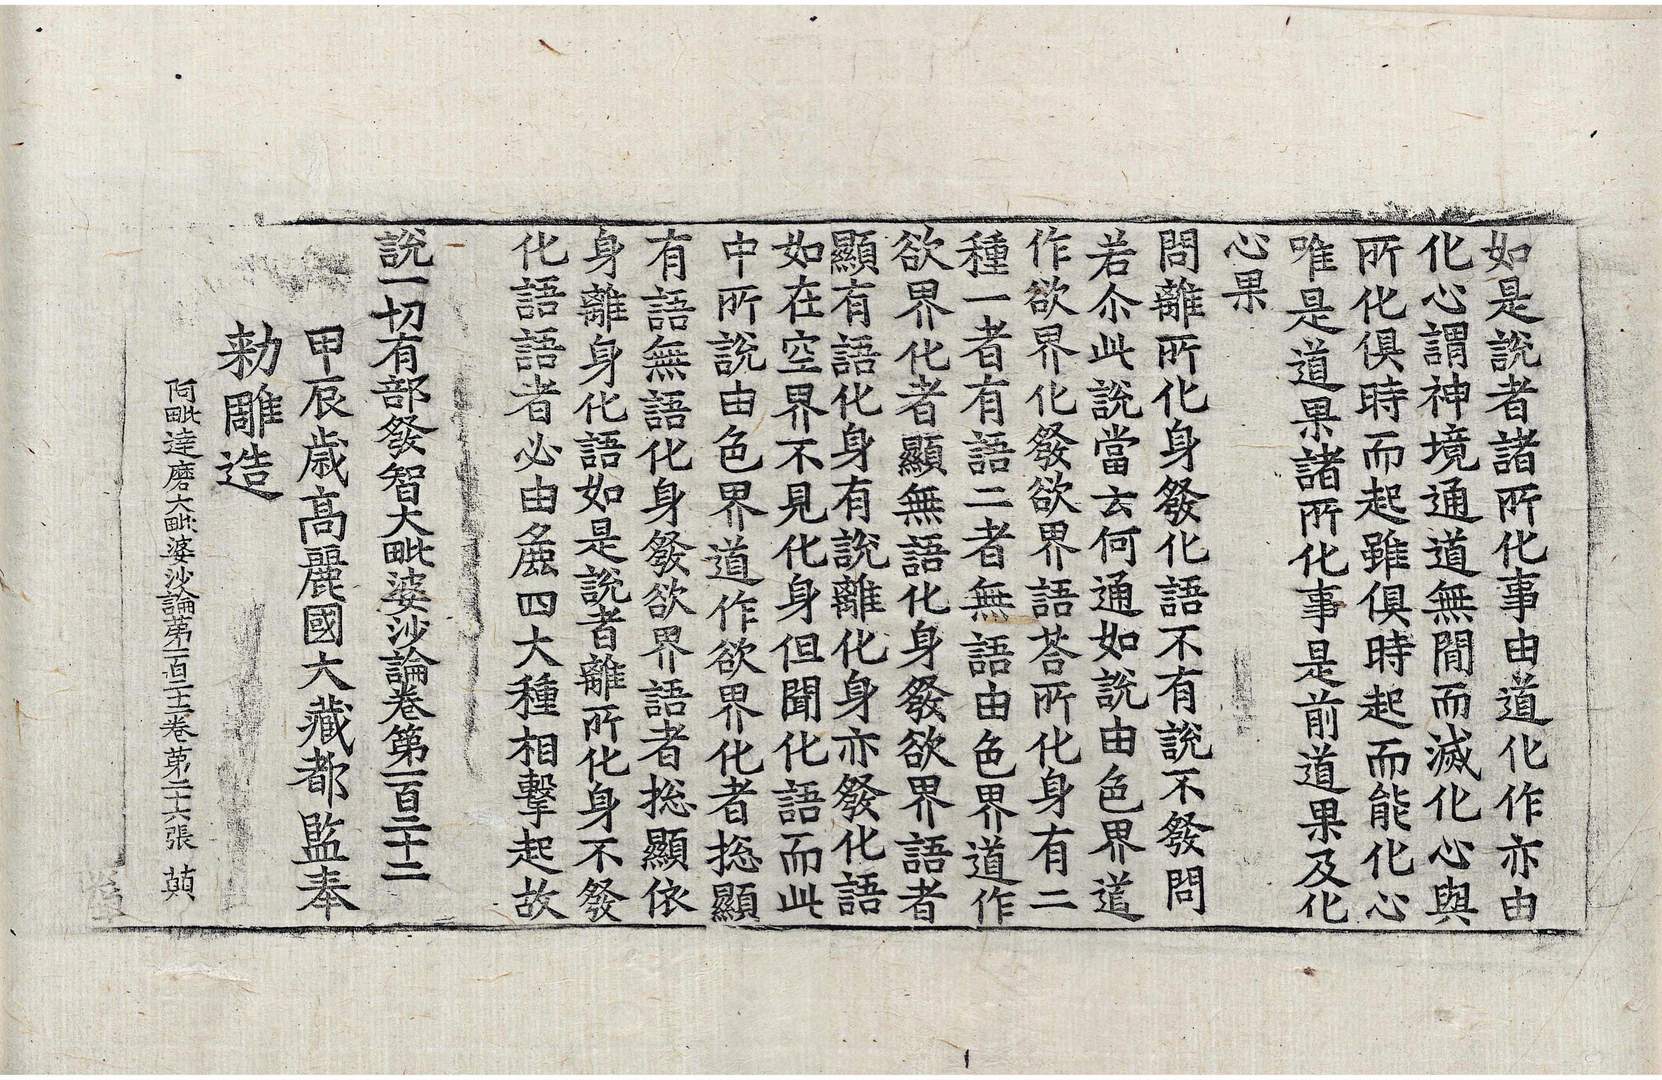 如是說者諸所化事由道化作亦由
化心謂神境通道無間而滅化心與
所化俱時而起雖俱時起而能化心
唯是道果諸所化事是前道果及化
心果
問離所化身發化語不有說不發問
若尒此說當云何通如說由色界道
作欲界化發欲界語荅所化身有二
種一者有語二者無語由色界道作
欲界化者顯無語化身發欲界語者
顯有語化身有說離化身亦發化語
如在空界不見化身但聞化語而此
中所說由色界道作欲界化者揔顯
有語無語化身發欲界語者揔顯依
身離身化語如是說者離所化身不發
化語語者必由麁四大種相擊起故
說一切有部發智大毗婆沙論卷第一百二十二
甲辰歲高麗國大藏都監奉
勑雕造
阿毗達磨大毗婆沙論第一百二十二卷 第二十六張 顛